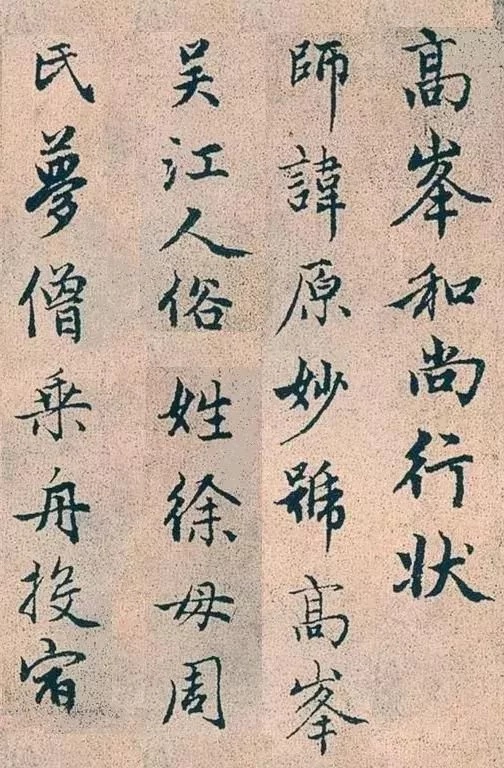 高峯和尚行状
師諱原妙號高峯
吴江人俗姓徐母周
氏夢僧乘舟投宿